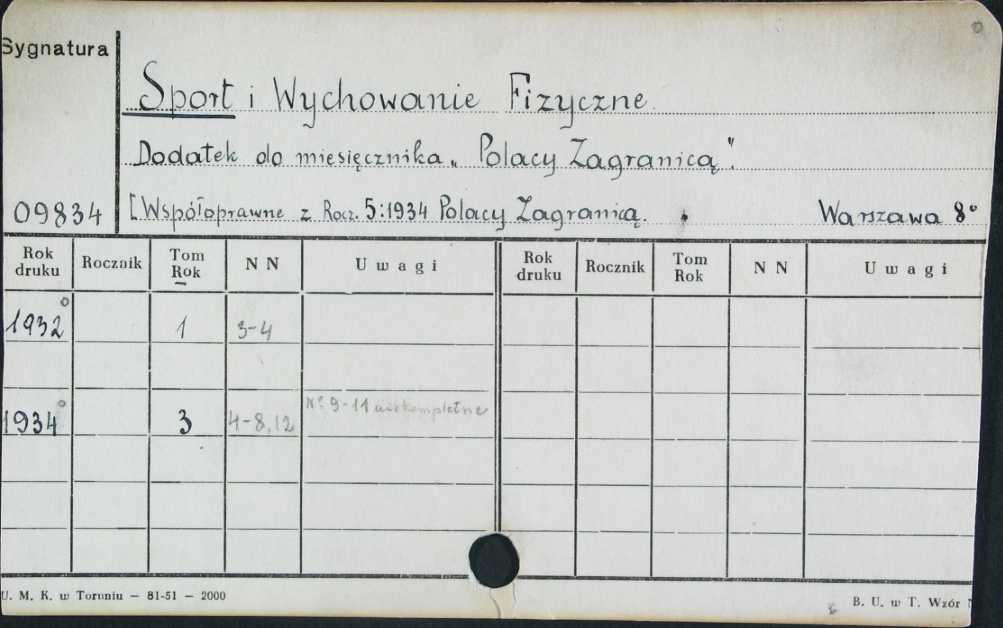 Sygnatura
Sport i Wychowanie Fizyczne.
Dodatek do miesięcznika „Polacy Zagranicą".
09834
[Współoprawne z Rocz. 5:1934 Polacy Zagranicą. Warszawa 8°
Rok druku Rocznik Tom Rok N N Uwagi Rok druku Rocznik Tom Rok N N Uwagi
1932° 1 3-4
1934° 3 4-8,12 N° 9-11 niekompletne
U. M. K. w Toruniu — 81-51 — 2000
B. U. w T. Wzór